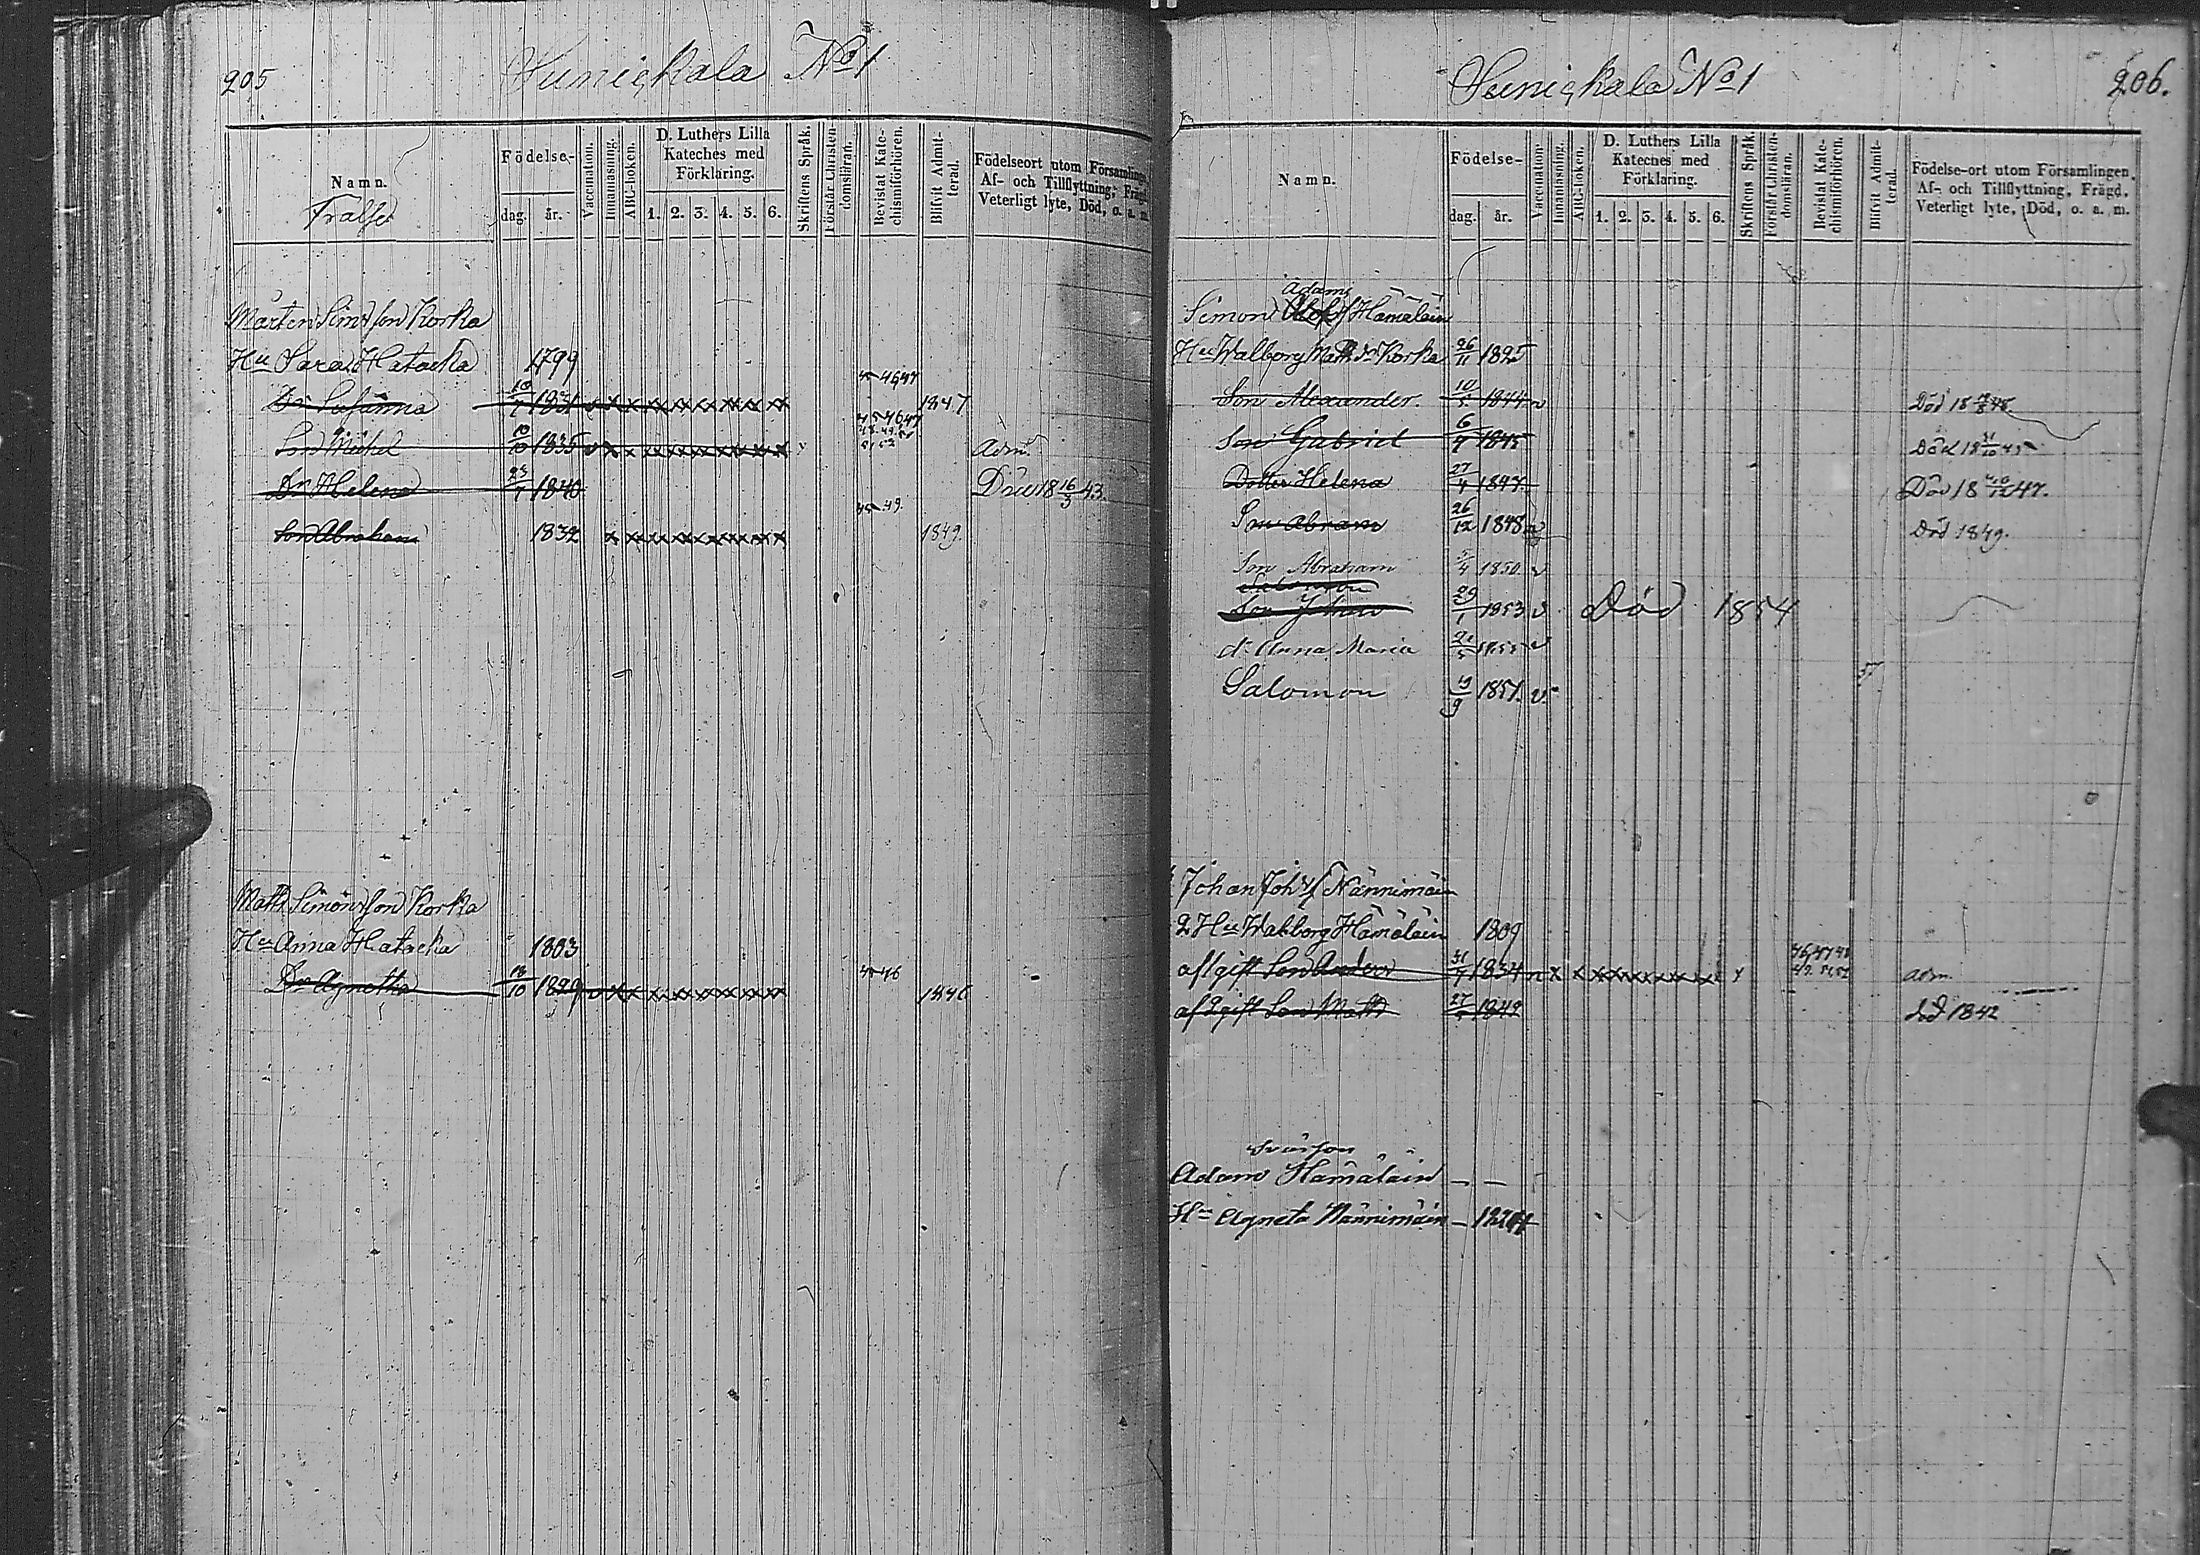 205
Suniekala No 1
Namn.
Frälse
Födelse-
dag. år.
Vaccination.
Innanläsning.
ABC-boken.
D. Luthers Lilla
Kateches med
Förklaring.
1. 2. 3. 4. 5. 6.
Skriftens Språk.
Förstår Christen-
domsläran.
Bevistat Kate-
chismiförhören.
Blifvit Admit-
terad.
Födelseort utom Församlingen
Af- och Tillflyttning, Frägd,
Veterligt lyte, Död, o. a. m.
Mårten Sim:s son Korka
Hu Sara Hatacka 1799
Dr Susanna 10/7 1831 v x x xx xx xx xx xx xx 45 46 47 1847
Son Michel 10/10 1835 v x x xx xx xx xx xx xx 45 46 47 Adm.
Dr Helena 1840 Död 18 16/3 43.
Son Abraham 1832 x x xx xx xx xx xx xx 45 49. 1849.
Matts Simons son Korka
Hu Anna Hatacka 1803
Dr Agnetha 18/10 1829 v x x xx xx xx xx xx xx 45 46 1846
Suniekala No 1
206.
Namn.
Födelse-
dag. år.
Vaccination.
Innanläsning.
ABC-boken.
D. Luthers Lilla
Kateches med
Förklaring.
1. 2. 3. 4. 5. 6.
Skriftens Språk.
Förstår Christen-
domsläran.
Bevistat Kate-
chismiförhören.
Blifvit Admit-
terad.
Födelse-ort utom Församlingen,
Af- och Tillflyttning, Frägd,
Veterligt lyte, Död, o. a. m.
Adams
Simon Hämäläin
Hu Walborg Matts dr Korka 26/11 1825
Son Alexander. 1844 v Död
Son Gabriel 1845 Död 18 31/10 45
Dotter Helena 27/4 1847. Död 18 47.
Son Abram 26/12 1848 v Död 1849.
Son Abraham 1850 v
Son Johan 29/1 1853 v Död 1854
dr Anna Maria v
57
Salomon 19/9 1857. v.
Johan Joh:s Nännimäin
2 Hu Walborg Hämäläin 1809
af 1 gift Son Anders 31/7 1834 v x x xx xx xx xx xx xx x 46 47 48 adm
af 2 gift Son Matts död 1842
Svärson
Adam Hämäläin — —
Hu Agneta Nännimäin —